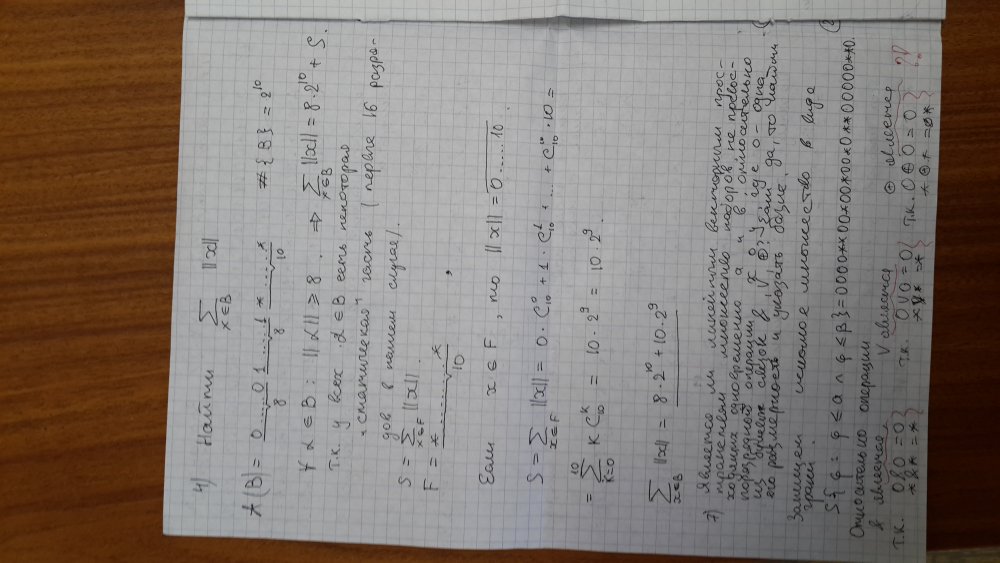 4) Найти ∑ x∈B ||x||
A(B) = 0.....0 1.....1 *.....* # {B} = 2^10
8 8 10
∀ α∈B : ||α|| ≥ 8 . ⇒ ∑ x∈B ||x|| = 8·2^10 + S.
т.к. у всех α∈B есть некоторая
"статическая" часть (первые 16 разря-
дов в нашем случае).
S = ∑ x∈F ||x||.
F = *.........*
10
Если x∈F, то ||x|| = 0.....10
S = ∑ x∈F ||x|| = 0·C_10^0 + 1·C_10^1 + ... + C_10^10·10 =
= ∑ k=0 10 k C_10^k = 10·2^9 = 10·2^9.
∑ x∈B ||x|| = 8·2^10 + 10·2^9
7) Является ли линейным векторным прос-
транством множество наборов, не превос-
ходящих одновременно a и b относительно
поразрядной операции φ ∘ γ, где ∘ - одна
из булевых связок &, V, ⊕? Если да, то найти
его размерность и указать базис.
Запишем искомое множество в виде
грани.
S{φ: φ ≤ a ∧ φ ≤ β} = 0000**00*00*00*0**00000**0.
Относительно операции
& является V является ⊕ является ??
т.к. 0&0=0 т.к. 0V0=0 т.к. 0⊕0=0
*&*=* *V*=* *⊕*=*